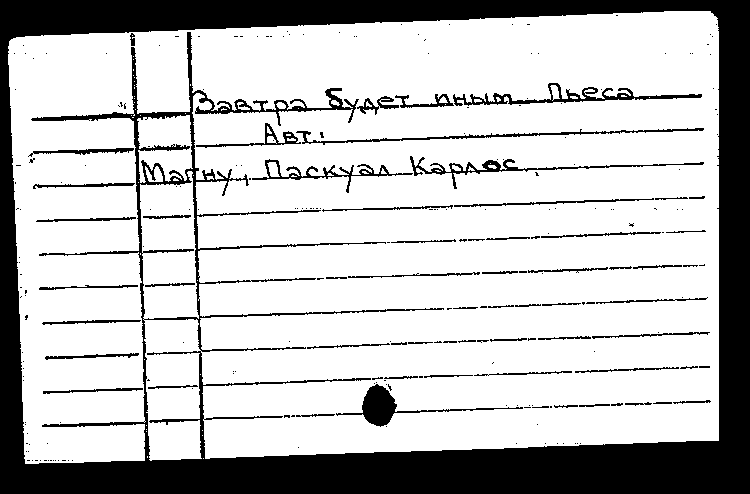 Завтра будет иным Пьеса
Авт.:
Магну, Паскуал Карлос.